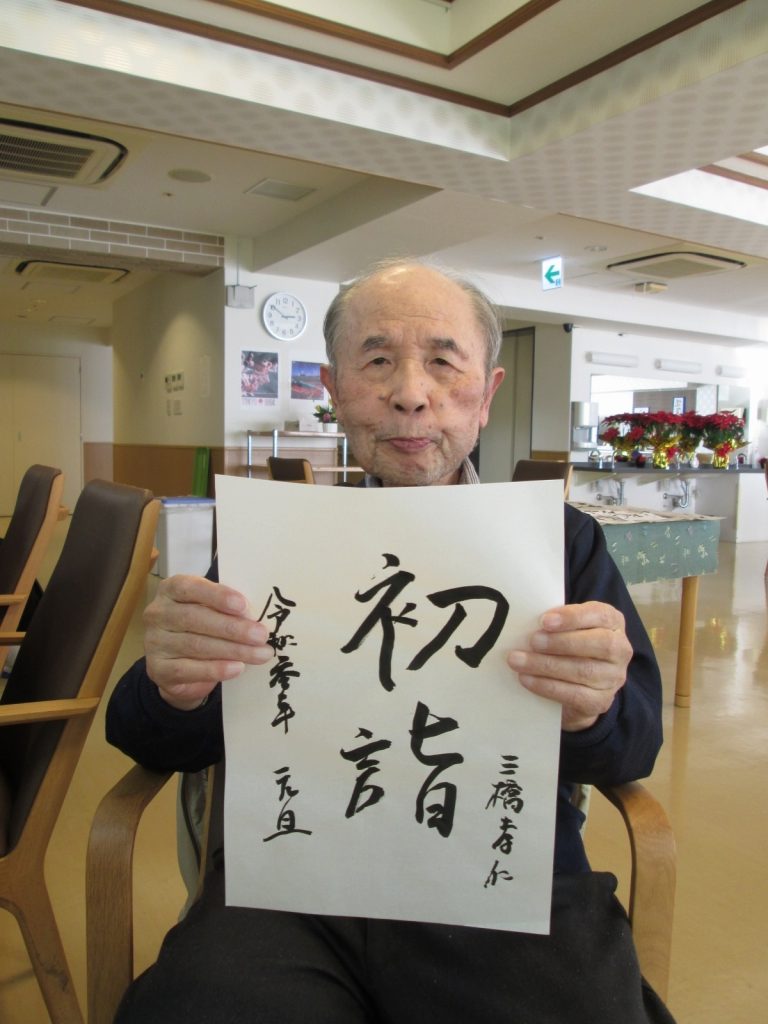 三橋孝仁
初詣
令和参年 元旦